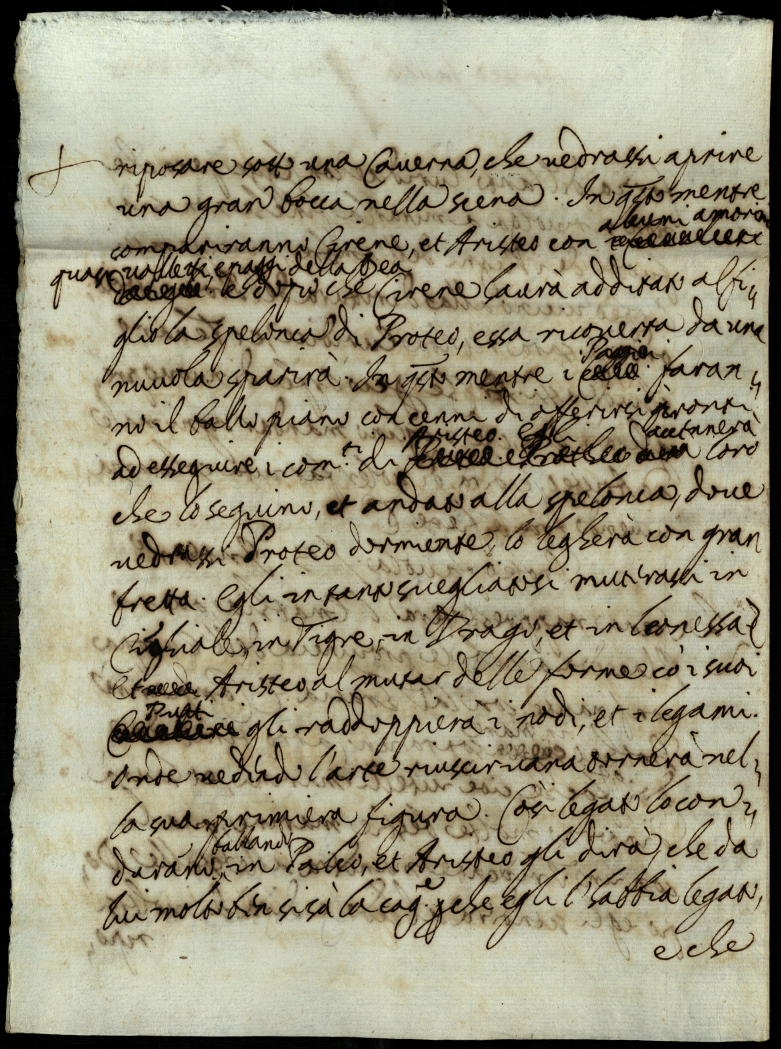 riposare sott una Cauerna, che uedrassi aprire
una gran bocca nella scena. In qsto mentre
alcuni amorini
compariranno Cirene, et Aristeo con
quasi ualletti, e paggi della Dea
e dopo che Cirene haurà additato al fi„
glio la spelonca di Proteo, essa ricouerta da una
Paggi
nuuola sparirà. In qsto mentre i faran„
no il ballo piano con cenni di offerirsi pronti
Aristeo. Egli accennerà
ad esseguire i com.ti di loro
che lo seguino, et andato alla spelonca, doue
uedrassi Proteo dormiente, lo legherà con gran
fretta. Egli in tanto suegliatosi mutirassi in
Cighiale, in Tigre, in Drago, et in leonessa
Et Aristeo, al mutar delle forme cò i suoi
Putti
gli raddoppierà i nodi, et i legami.
onde uedendo l'arte riuscir uana tornerà nel„
la sua primiera figura. Così legato lo con„
ballando
darano, in Palco, et Aristeo gli dirà, che da
lui molto ben si sà la cag.e pche egli l'habbia legato,
e che